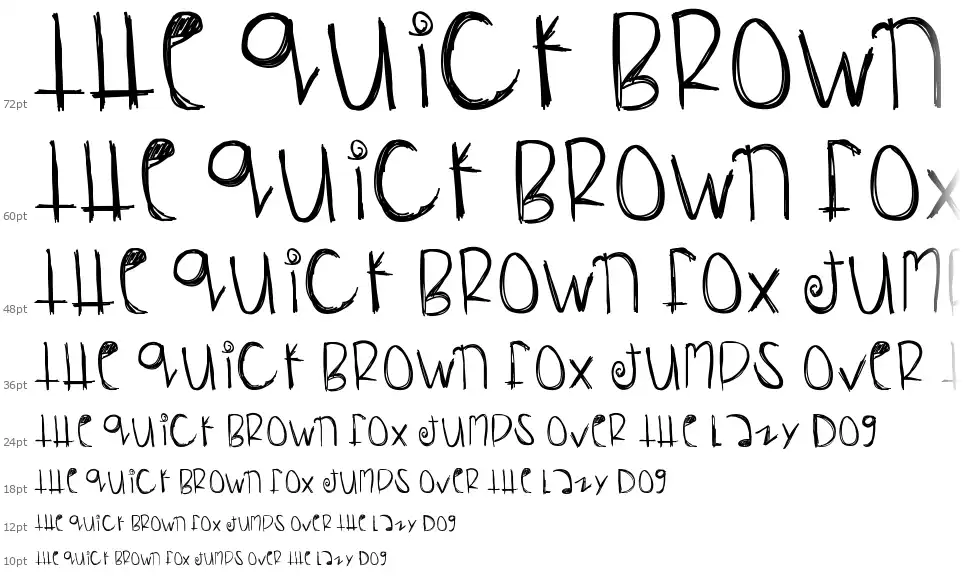 72pt THE QUICK BROWN
60pt THE QUICK BROWN FOX
48pt THE QUICK BROWN FOX JUMP
36pt THE QUICK BROWN FOX JUMPS OVER t
24pt THE QUICK BROWN FOX JUMPS OVER THE LAZY DOG
18pt THE QUICK BROWN FOX JUMPS OVER THE LAZY DOG
12pt THE QUICK BROWN FOX JUMPS OVER THE LAZY DOG
10pt THE QUICK BROWN FOX JUMPS OVER THE LAZY DOG